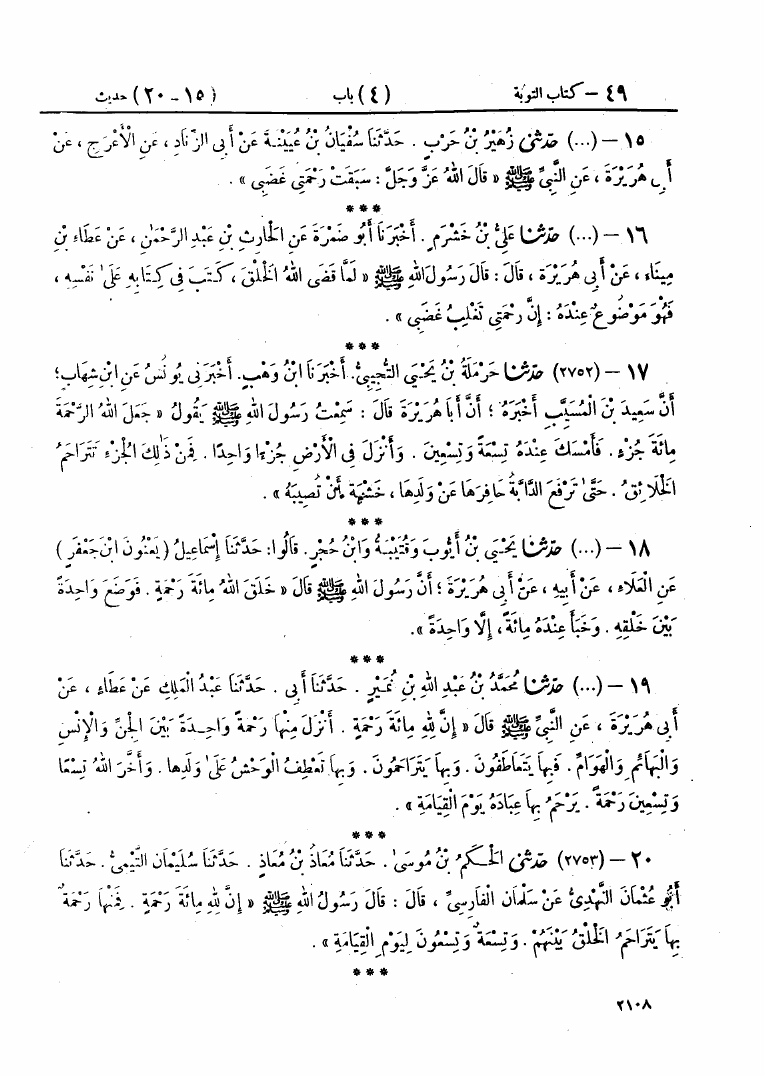 ٤٩ – كتاب التوبة (٤) باب (١٥ - ٢٠) حديث
١٥ – (...) حَدَّثَنِي زُهَيْرُ بْنُ حَرْبٍ . حَدَّثَنَا سُفْيَانُ بْنُ عُيَيْنَةَ عَنْ أَبِي الزِّنَادِ ، عَنِ الْأَعْرَجِ ، عَنْ
أَبِي هُرَيْرَةَ ، عَنِ النَّبِيِّ ﷺ « قَالَ اللهُ عَزَّ وَجَلَّ : سَبَقَتْ رَحْمَتِي غَضَبِي » .
***
١٦ – (...) حَدَّثَنَا عَلِيُّ بْنُ خَشْرَمٍ . أَخْبَرَنَا أَبُو ضَمْرَةَ عَنِ الْحَارِثِ بْنِ عَبْدِ الرَّحْمَٰنِ ، عَنْ عَطَاءِ بْنِ
مِينَاءَ ، عَنْ أَبِي هُرَيْرَةَ ، قَالَ : قَالَ رَسُولُ اللهِ ﷺ « لَمَّا قَضَى اللهُ الْخَلْقَ ، كَتَبَ فِي كِتَابِهِ عَلَىٰ نَفْسِهِ ،
فَهُوَ مَوْضُوعٌ عِنْدَهُ : إِنَّ رَحْمَتِي تَغْلِبُ غَضَبِي » .
***
١٧ – (٢٧٥٢) حَدَّثَنَا حَرْمَلَةُ بْنُ يَحْيَى التُّجِيبِيُّ . أَخْبَرَنَا ابْنُ وَهْبٍ . أَخْبَرَنِي يُونُسُ عَنِ ابْنِ شِهَابٍ ؛
أَنَّ سَعِيدَ بْنَ الْمُسَيَّبِ أَخْبَرَهُ ؛ أَنَّ أَبَا هُرَيْرَةَ قَالَ : سَمِعْتُ رَسُولَ اللهِ ﷺ يَقُولُ « جَعَلَ اللهُ الرَّحْمَةَ
مِائَةَ جُزْءٍ . فَأَمْسَكَ عِنْدَهُ تِسْعَةً وَتِسْعِينَ . وَأَنْزَلَ فِي الْأَرْضِ جُزْءًا وَاحِدًا . فَمِنْ ذَٰلِكَ الْجُزْءِ تَتَرَاحَمُ
الْخَلَائِقُ . حَتَّىٰ تَرْفَعَ الدَّابَّةُ حَافِرَهَا عَنْ وَلَدِهَا ، خَشْيَةَ أَنْ تُصِيبَهُ » .
***
١٨ – (...) حَدَّثَنَا يَحْيَى بْنُ أَيُّوبَ وَقُتَيْبَةُ وَابْنُ حُجْرٍ . قَالُوا : حَدَّثَنَا إِسْمَاعِيلُ ( يَعْنُونَ ابْنَ جَعْفَرٍ )
عَنِ الْعَلَاءِ ، عَنْ أَبِيهِ ، عَنْ أَبِي هُرَيْرَةَ ؛ أَنَّ رَسُولَ اللهِ ﷺ قَالَ « خَلَقَ اللهُ مِائَةَ رَحْمَةٍ . فَوَضَعَ وَاحِدَةً
بَيْنَ خَلْقِهِ . وَخَبَأَ عِنْدَهُ مِائَةً ، إِلَّا وَاحِدَةً » .
***
١٩ – (...) حَدَّثَنَا مُحَمَّدُ بْنُ عَبْدِ اللهِ بْنِ نُمَيْرٍ . حَدَّثَنَا أَبِي . حَدَّثَنَا عَبْدُ الْمَلِكِ عَنْ عَطَاءٍ ، عَنْ
أَبِي هُرَيْرَةَ ، عَنِ النَّبِيِّ ﷺ قَالَ « إِنَّ لِلهِ مِائَةَ رَحْمَةٍ . أَنْزَلَ مِنْهَا رَحْمَةً وَاحِدَةً بَيْنَ الْجِنِّ وَالْإِنْسِ
وَالْبَهَائِمِ وَالْهَوَامِّ . فَبِهَا يَتَعَاطَفُونَ . وَبِهَا يَتَرَاحَمُونَ . وَبِهَا تَعْطِفُ الْوَحْشُ عَلَىٰ وَلَدِهَا . وَأَخَّرَ اللهُ تِسْعًا
وَتِسْعِينَ رَحْمَةً . يَرْحَمُ بِهَا عِبَادَهُ يَوْمَ الْقِيَامَةِ » .
***
٢٠ – (٢٧٥٣) حَدَّثَنِي الْحَكَمُ بْنُ مُوسَىٰ . حَدَّثَنَا مُعَاذُ بْنُ مُعَاذٍ . حَدَّثَنَا سُلَيْمَانُ التَّيْمِيُّ . حَدَّثَنَا
أَبُو عُثْمَانَ النَّهْدِيُّ عَنْ سَلْمَانَ الْفَارِسِيِّ ، قَالَ : قَالَ رَسُولُ اللهِ ﷺ « إِنَّ لِلهِ مِائَةَ رَحْمَةٍ . فَمِنْهَا رَحْمَةٌ
بِهَا يَتَرَاحَمُ الْخَلْقُ بَيْنَهُمْ . وَتِسْعَةٌ وَتِسْعُونَ لِيَوْمِ الْقِيَامَةِ » .
***
٢١٠٨